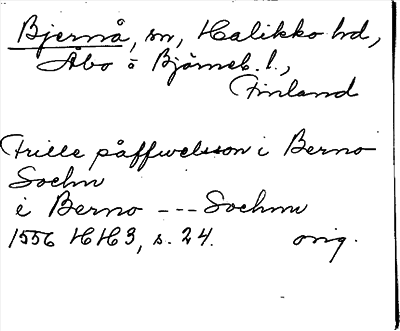 Bjernå, sn, Halikko hd,
Åbo o Björneb. l.,
Finland
Frille påffwelsson i Berno
Sochn
i Berno --- Sochnn
1556 HH3, s. 24. orig.